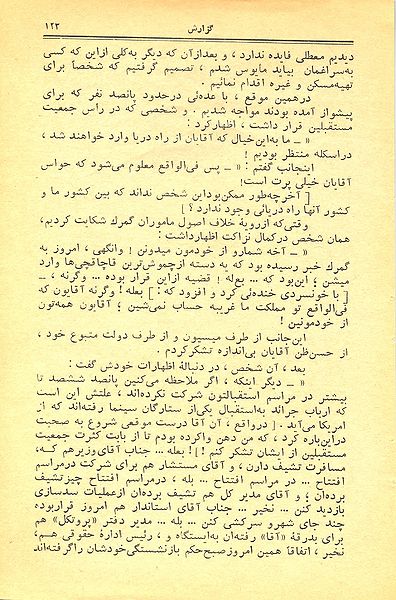 گزارش ۱۲۳
دیدیم معطلی فایده ندارد ، و بعدازآن که دیگر به‌کلی ازاین که کسی
به‌سراغمان بیاید مایوس شدم ، تصمیم گرفتیم که شخصاً برای
تهیه‌مسکن و غیره اقدام نمائیم .
درهمین موقع ، با عده‌ئی درحدود پانصد نفر که برای
پیشواز آمده بودند مواجه شدیم . و شخصی که در راس جمعیت
مستقبلین قرار داشت ، اظهارکرد :
« ــ ما به‌این‌خیال که آقایان از راه دریا وارد خواهند شد ،
دراسکله منتظر بودیم !
اینجانب گفتم : « ــ پس فی‌الواقع معلوم می‌شود که حواس
آقایان خیلی پرت است!
[ آخرچه‌طور ممکن‌بوداین شخص نداند که بین کشور ما و
کشور آنها راه دریائی وجود ندارد ؟ ]
وقتی‌که ازرویهٔ خلاف اصول ماموران گمرك شکایت کردیم،
همان شخص درکمال نزاکت اظهارداشت :
« ــ آخه شمارو از خودمون میدونن ! وانگهی ، امروز به
گمرك خبر رسیده بود که یه دسته ازچموش‌ترین قاچاقچی‌ها وارد
میشن ؛ این‌بود که ... بع‌له ! قضیه ازاین قرار بوده ... وگرنه ، ــ
[ با خونسردی خنده‌ئی کرد و افزود که : ] بعله ! وگرنه آقایون که
فی‌الواقع تو مملکت ما غریبه حساب نمی‌شین ؛ آقایون همه‌تون
از خودمونین !
این‌جانب از طرف میسیون و از طرف دولت متبوع خود ،
از حسن‌ظن آقایان بی‌اندازه تشکرکردم .
بعد ، آن شخص ، در دنبالهٔ اظهارات خودش گفت :
« ــ دیگر اینکه ، اگر ملاحظه می‌کنین پانصد ششصد تا
بیشتر در مراسم استقبالتون شرکت نکرده‌اند ، علتش این است
که ارباب جرائد به‌استقبال یکی‌از ستارگان سینما رفته‌اند که از
امریکا می‌آید . [ درواقع ، آن آقا درست موقعی شروع به صحبت
دراین‌باره کرد ، که من دهن واکرده بودم تا از بابت کثرت جمعیت
مستقبلین از ایشان تشکر کنم !] ! بعله ... جناب آقای‌وزیرهم کـه،
مسافرت تشیف دارن ، و آقای مستشار هم برای شرکت درمراسم
افتتاح ... در مراسم افتتاح ... بله ، درمراسم افتتاح چیزتشیف
برده‌ان ؛ و آقای مدیر کل هم تشیف برده‌ان ازعملیات سدسازی
بازدید کنن ... نخیر ... جناب آقای استاندار هم امروز قراربوده
چند جای شهرو سرکشی کنن ... بله ... مدیر دفتر «پروتکل» هم
برای بدرقهٔ «آقا» رفته‌ان به‌ایستگاه و ، رئیس ادارهٔ حقوقی هسم،
نخیر ، اتفاقاً همین امروزصبح‌حکم بازنشستگی‌خودشان راگرفته‌اند